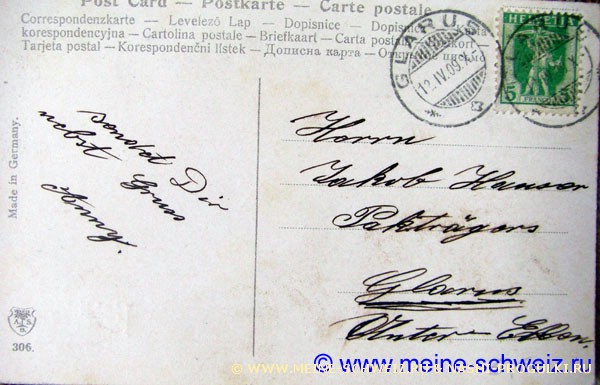 Post Card – Postkarte – Carte postale
Correspondenzkarte – Levelező Lap – Dopisnice – Dopisnica
korespondencyjna – Cartolina postale – Briefkaart – Carta postala
Tarjeta postal – Korespondenční lístek – Дописна карта – Открытое письмо
GLARUS
12.IV.09
HELVETIA
5
FRANCO
Made in Germany.
sendet Dir
nebst Gruss
Anny.
Herrn
Jakob Hauser
Pakträgers
Glarus
Unter-
306.
© WWW.MEINE-SCHWEIZ.RU
© www.meine-schweiz.ru